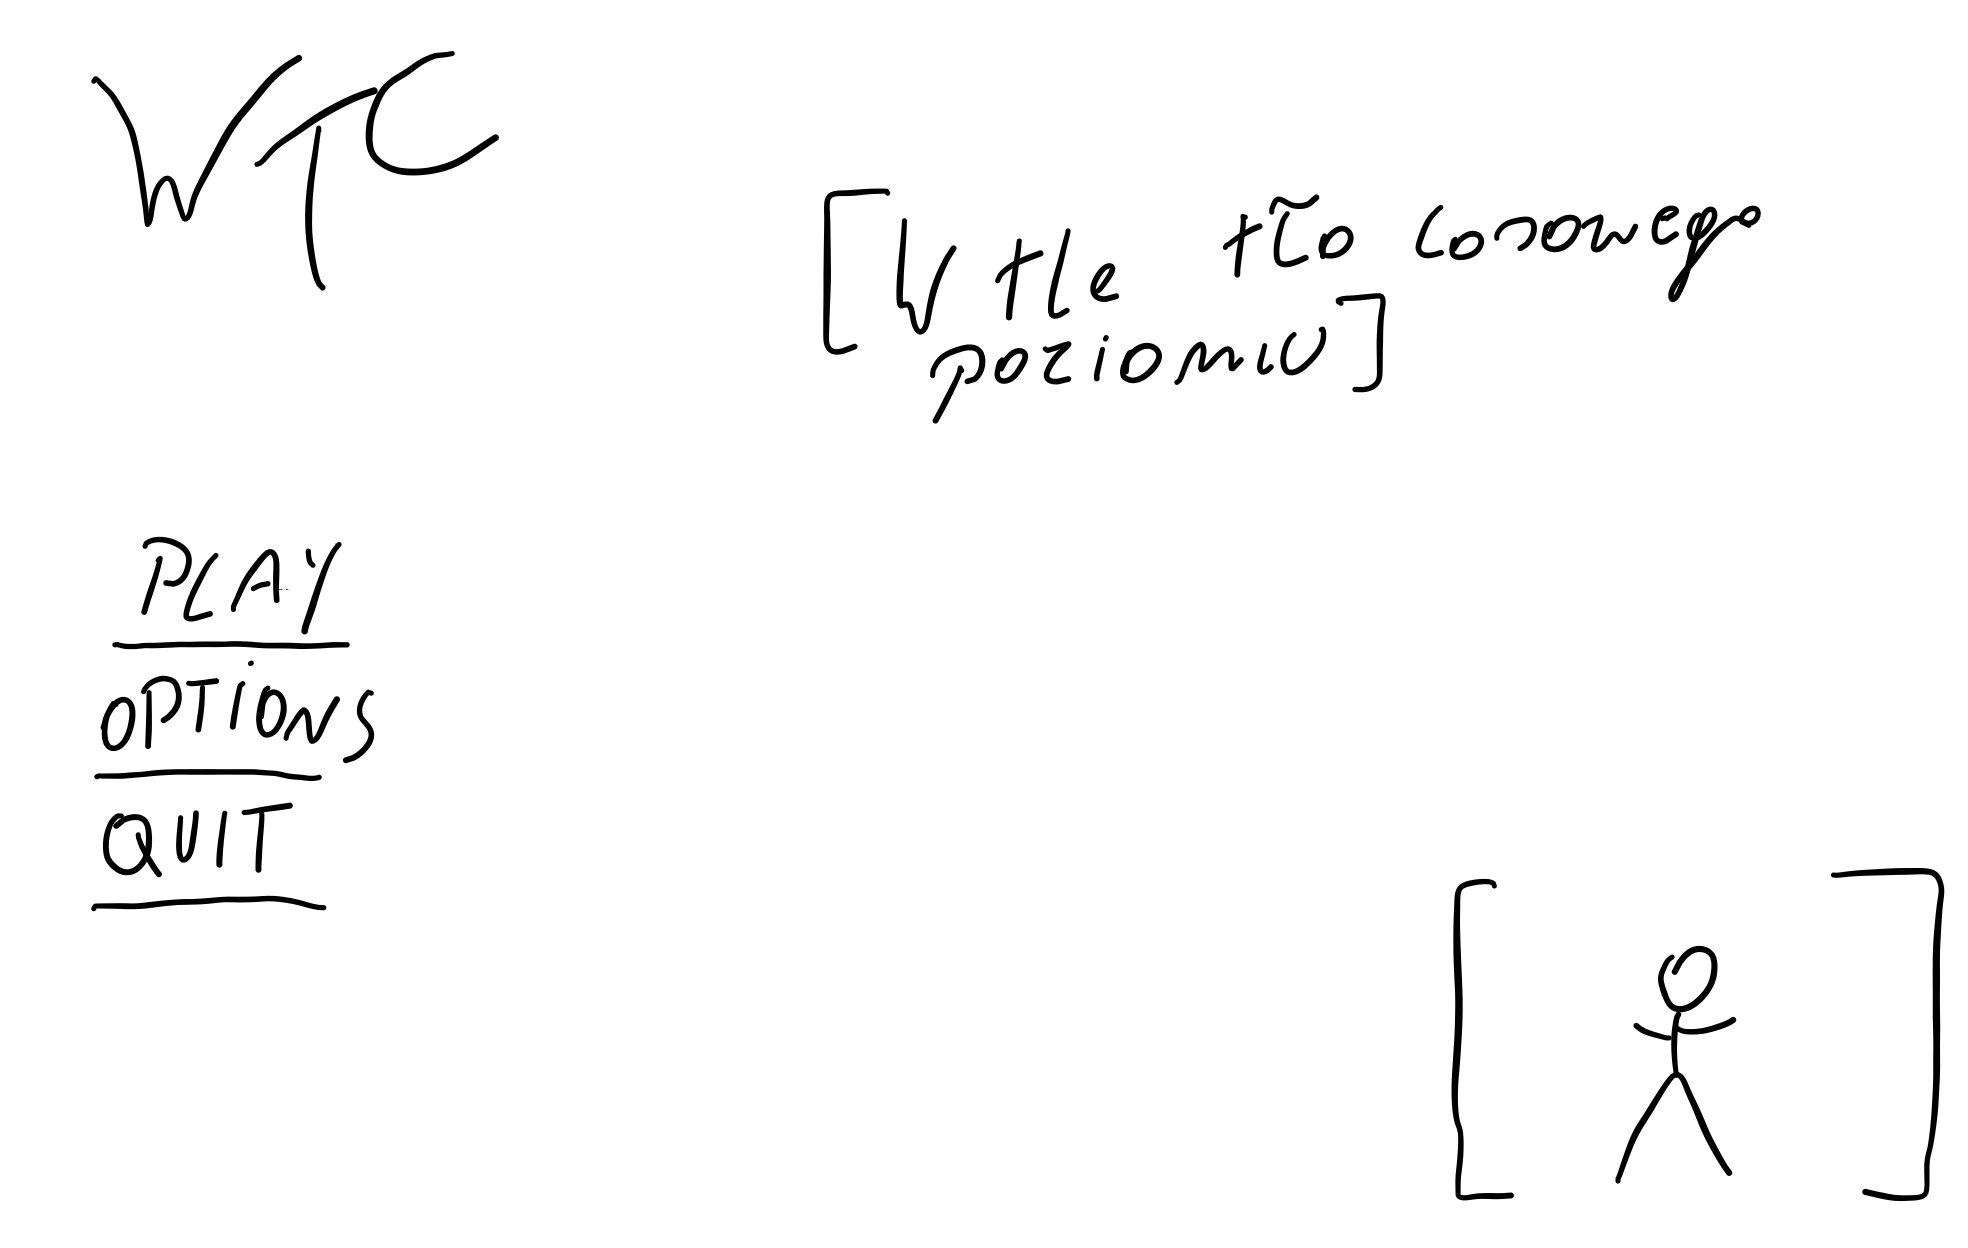 WTC
[W tle tło losowego
poziomu]
PLAY
OPTIONS
QUIT